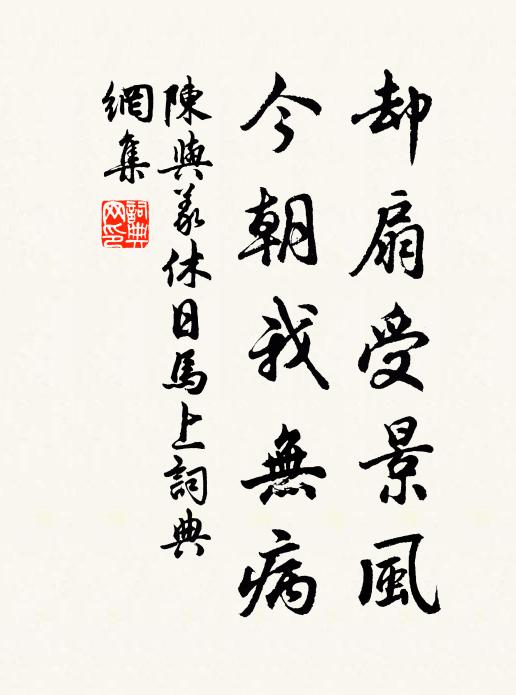 却扇受景風
今朝我無病
陳與義休日馬上詞典
網集
詞典網印